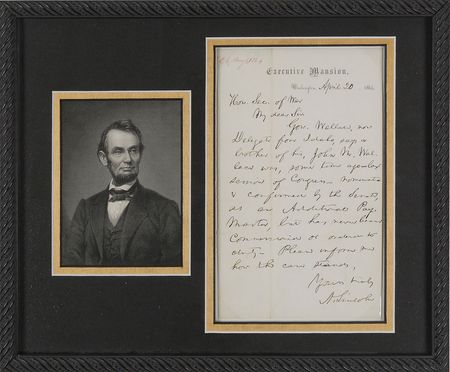 Executive Mansion,
Washington, April 20, 186
Hon. Sec. of War
My dear Sir
Gov. Wallace, now
Delegate from Idaho, says a
brother of his, John M. Wal-
lace was, some time ago
session of Congress, nominated
& confirmed by the Senate,
as an Additional Pay-
Master, but has never been
Commissioned or ordered to
duty. Please inform me
how the case stands,
Yours truly
A. Lincoln